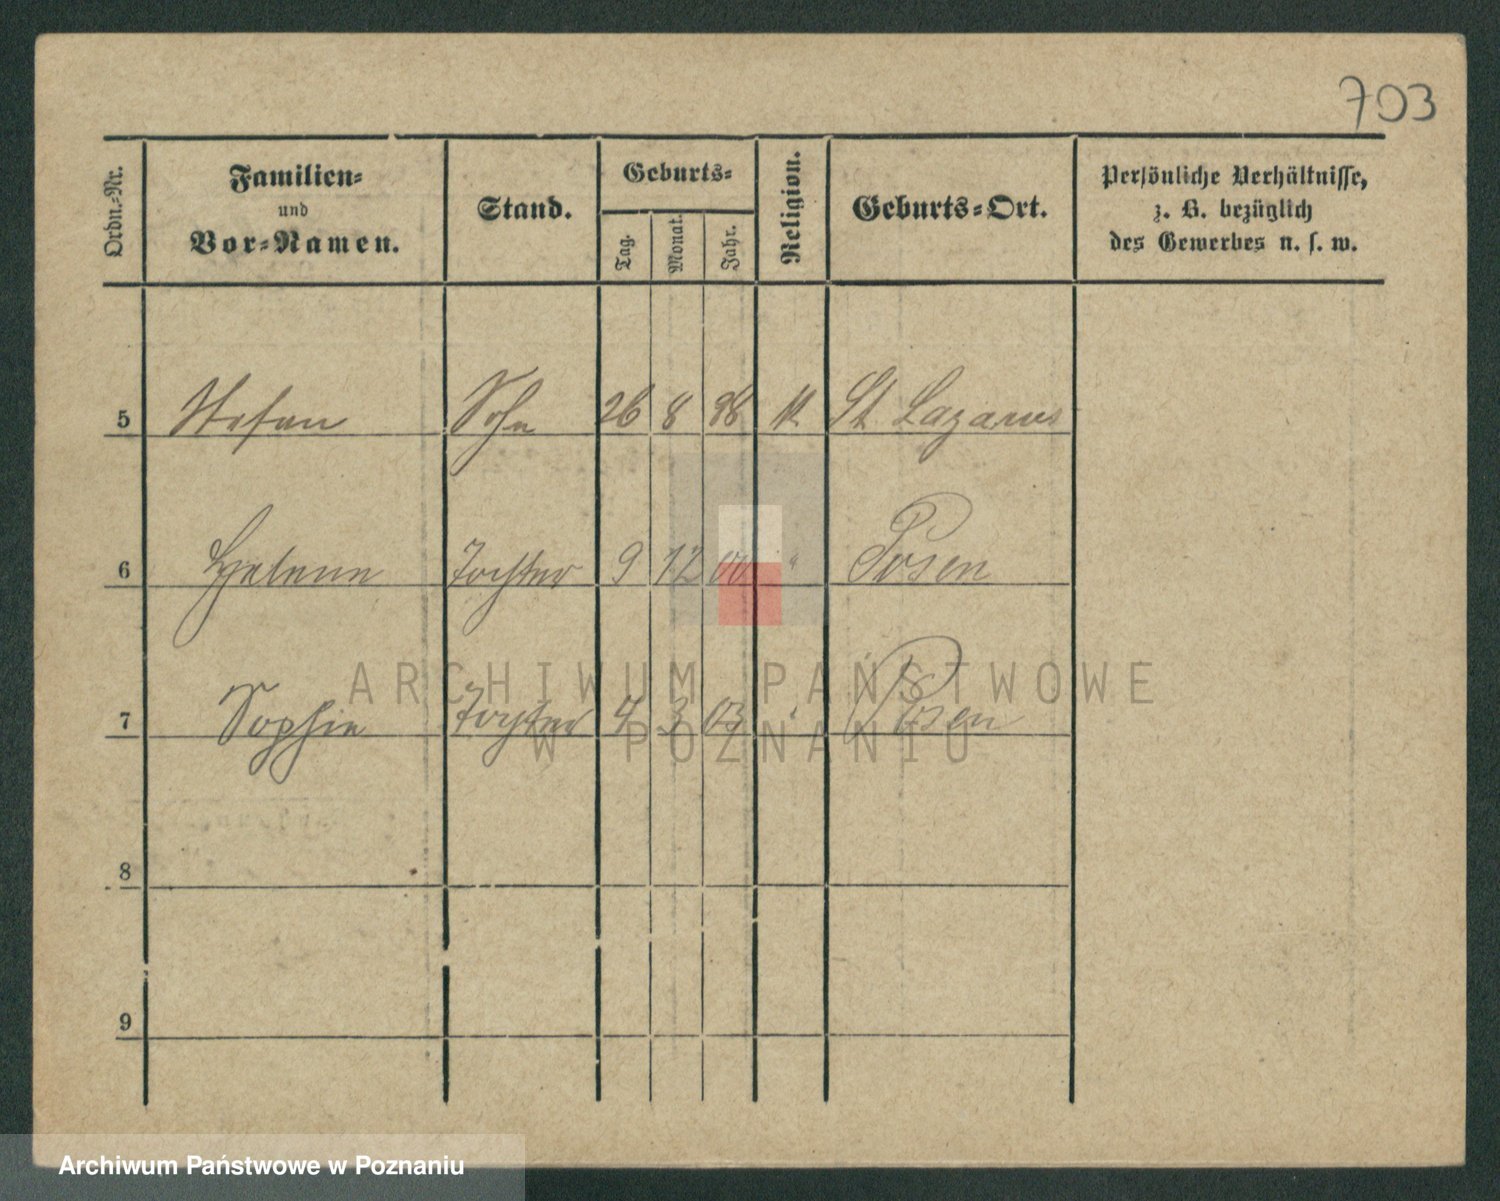 703
Ordn.-Nr.
Familien-
und
Vor-Namen.
Stand.
Geburts-
Tag.
Monat.
Jahr.
Religion.
Geburts-Ort.
Persönliche Verhältnisse,
z. B. bezüglich
des Gewerbes u. s. w.
5 Stefan Sohn 26 8 98 k St Lazarus
6 Helene Tochter 9 12 00 " Posen
7 Sophie Tochter 4 3 03 " Posen
8
9
ARCHIWUM PAŃSTWOWE
W POZNANIU
Archiwum Państwowe w Poznaniu